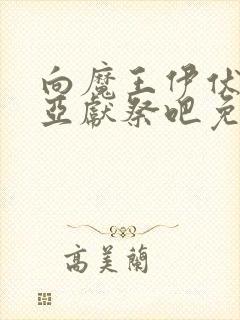 向魔王伊伏
亞獻祭吧免
高美蘭